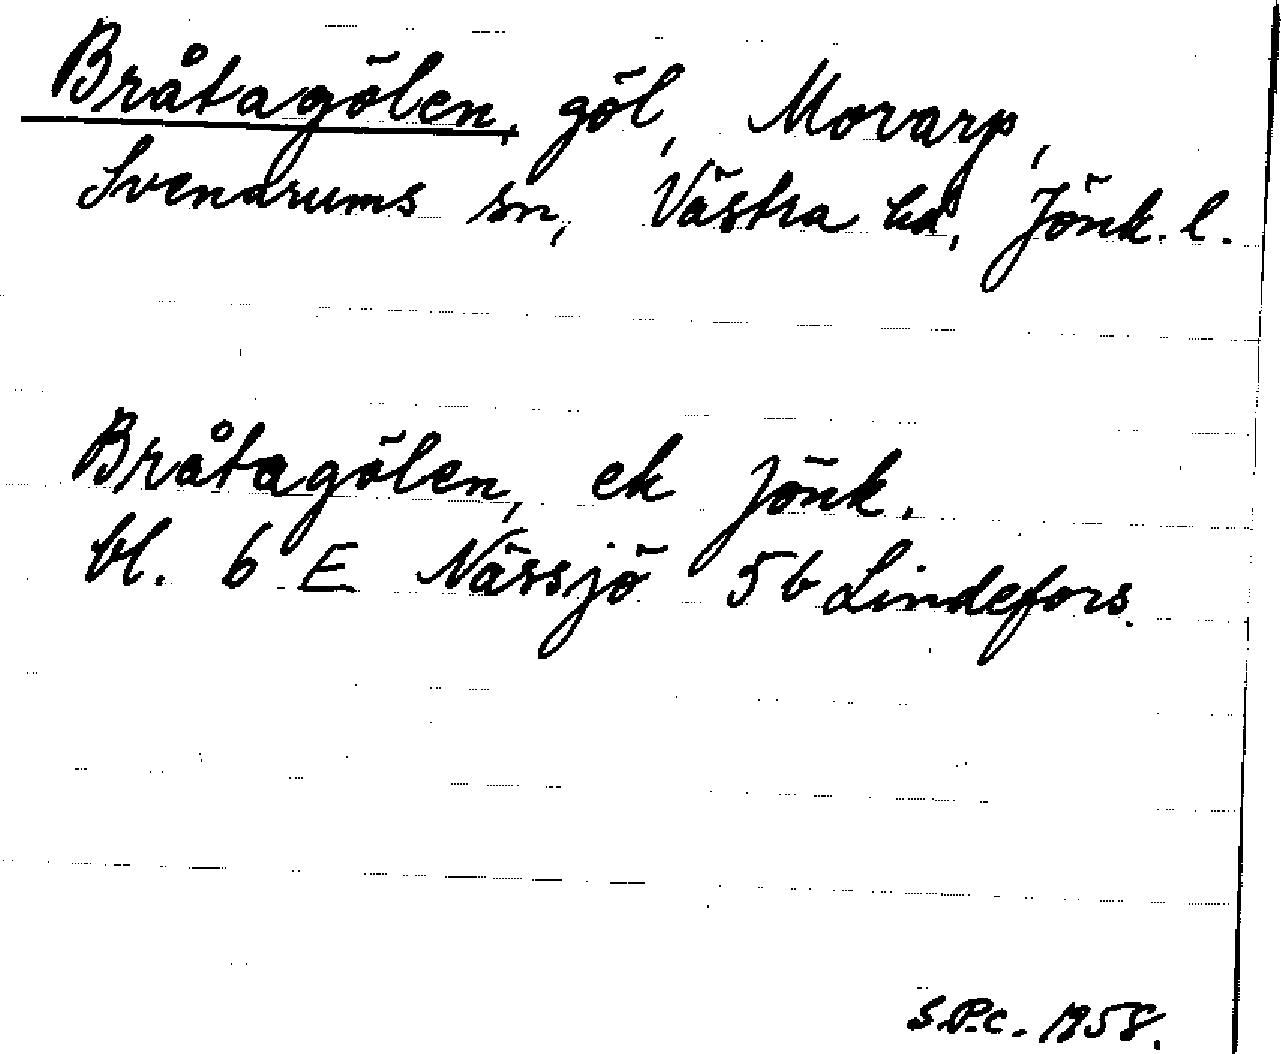 Bråtagölen, göl, Morarp,
Svenarums sn, Västra hd, Jönk. l.
Bråtagölen, ek Jönk.
bl. 6 E Nässjö 5b Lindefors.
S.P.c. 1958.